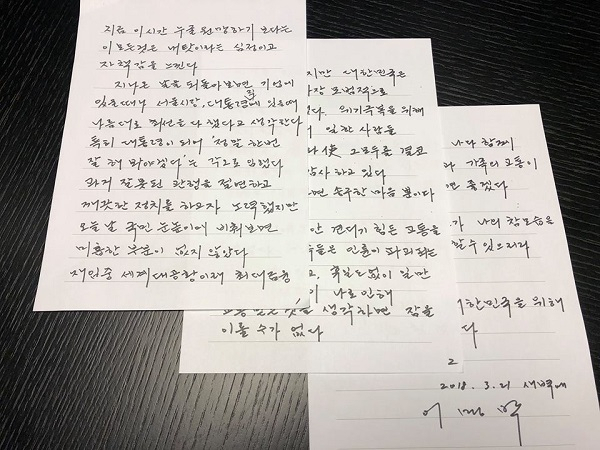 지금 이 시간 누굴 원망하기 보다는
이 모든것은 내탓이라는 심정이고
자책감을 느낀다
지나온 날을 되돌아보면 기업에
있을때나 서울시장, 대통령직에 있을때
나름대로 최선을 다 했다고 생각한다
특히 대통령이 되어 '정말 한번
잘 해 봐야겠다'는 각오로 임했다
과거 잘못된 관행을 절연하고
깨끗한 정치를 하고자 노력했지만
오늘 날 국민 눈높이에 비춰보면
미흡한 부분이 없지 않았다
재임중 세계대공황이래 최대 금융
지만 대한민국은
장 모범적으로
다. 위기극복을 위해
일한 사람들
使 그 모두를 결코
감사하고 있다
면 송구한 마음 뿐이다
안 견디기 힘든 고통을
들은 인륜이 파괴되는
고, 휴일도 없이 일만
나로 인해
생각하면 잠을
이룰 수가 없다
나와 함께
가족의 고통이
면 좋겠다
가 나의 참모습을
할 수 있으리라
대한민국을 위해
다
2
2018. 3. 21 새벽에
이 명 박